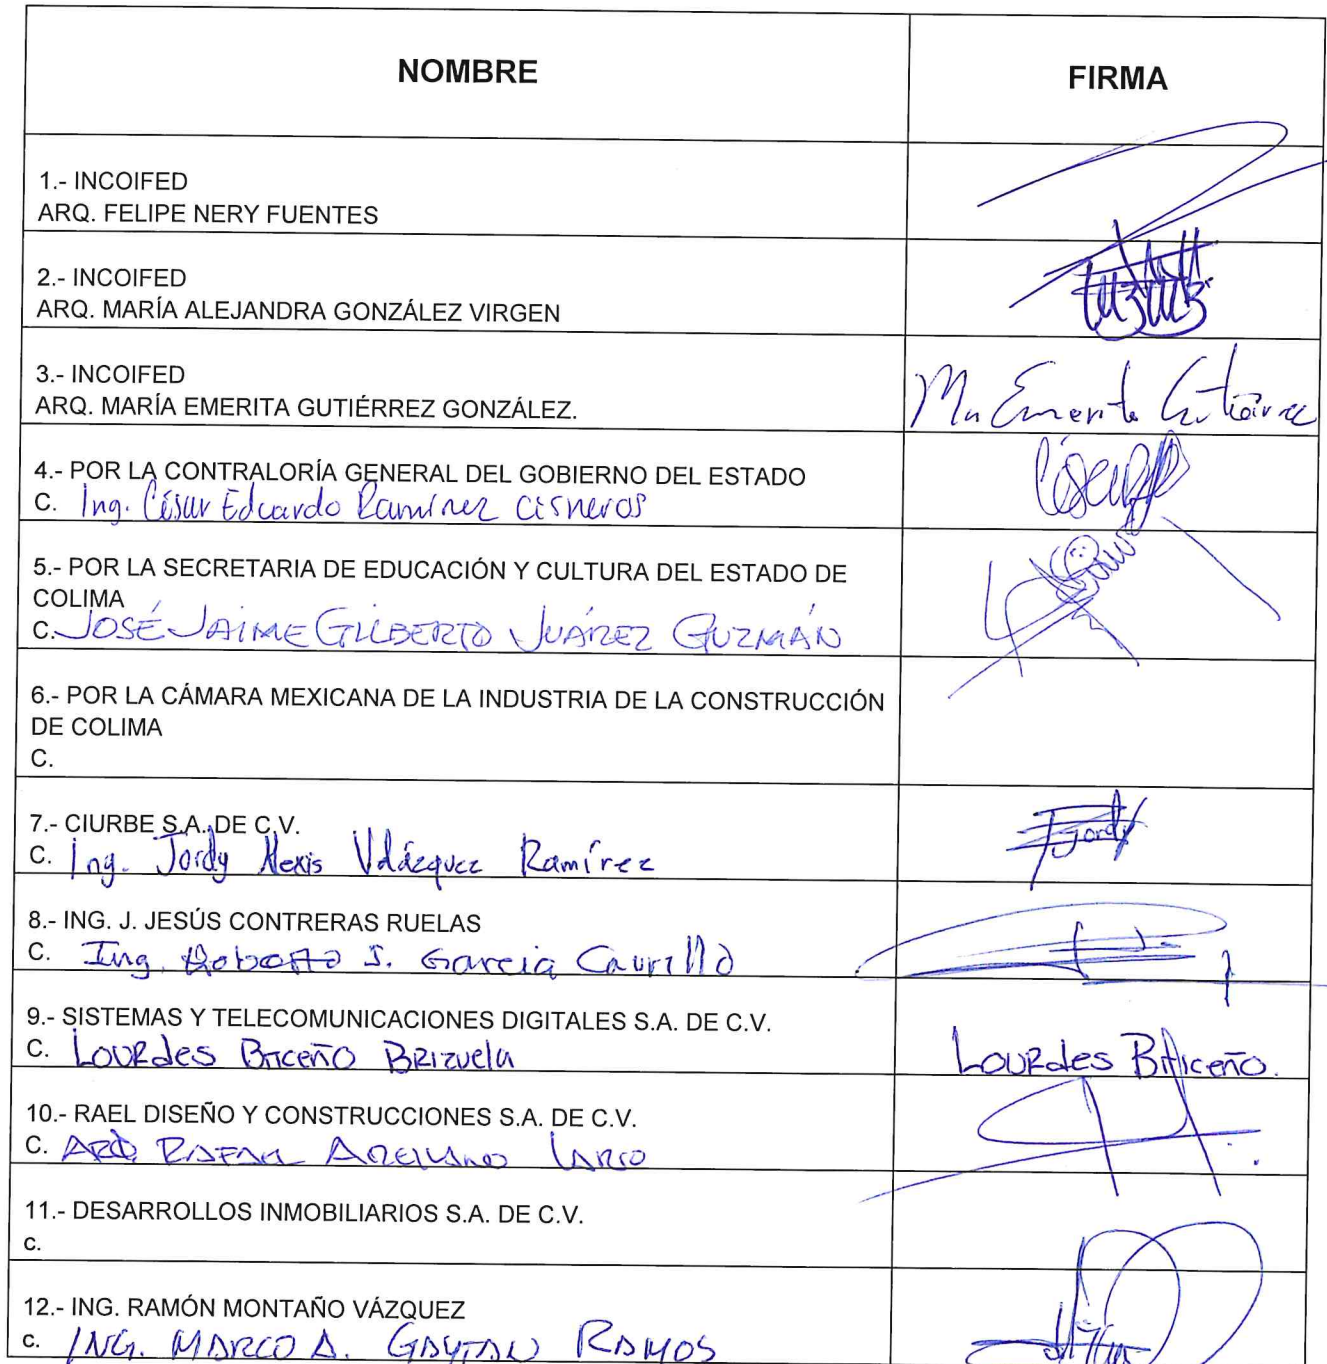 NOMBRE FIRMA
1.- INCOIFED
ARQ. FELIPE NERY FUENTES
2.- INCOIFED
ARQ. MARÍA ALEJANDRA GONZÁLEZ VIRGEN
3.- INCOIFED
ARQ. MARÍA EMERITA GUTIÉRREZ GONZÁLEZ. Ma Emerita Gutiérrez
4.- POR LA CONTRALORÍA GENERAL DEL GOBIERNO DEL ESTADO
C. Ing. César Eduardo Ramírez Cisneros
5.- POR LA SECRETARIA DE EDUCACIÓN Y CULTURA DEL ESTADO DE
COLIMA
C. JOSÉ JAIME GILBERTO JUÁREZ GUZMÁN
6.- POR LA CÁMARA MEXICANA DE LA INDUSTRIA DE LA CONSTRUCCIÓN
DE COLIMA
C.
7.- CIURBE S.A. DE C.V.
C. Ing. Jordy Alexis Velázquez Ramírez Jordy
8.- ING. J. JESÚS CONTRERAS RUELAS
C. Ing. Roberto J. Garcia Carrillo
9.- SISTEMAS Y TELECOMUNICACIONES DIGITALES S.A. DE C.V.
C. Lourdes Briceño Brizuela Lourdes Briceño.
10.- RAEL DISEÑO Y CONSTRUCCIONES S.A. DE C.V.
C. ARQ. RAFAEL ARELLANO LARIO
11.- DESARROLLOS INMOBILIARIOS S.A. DE C.V.
c.
12.- ING. RAMÓN MONTAÑO VÁZQUEZ
c. ING. MARCO A. GAYTAN RAMOS